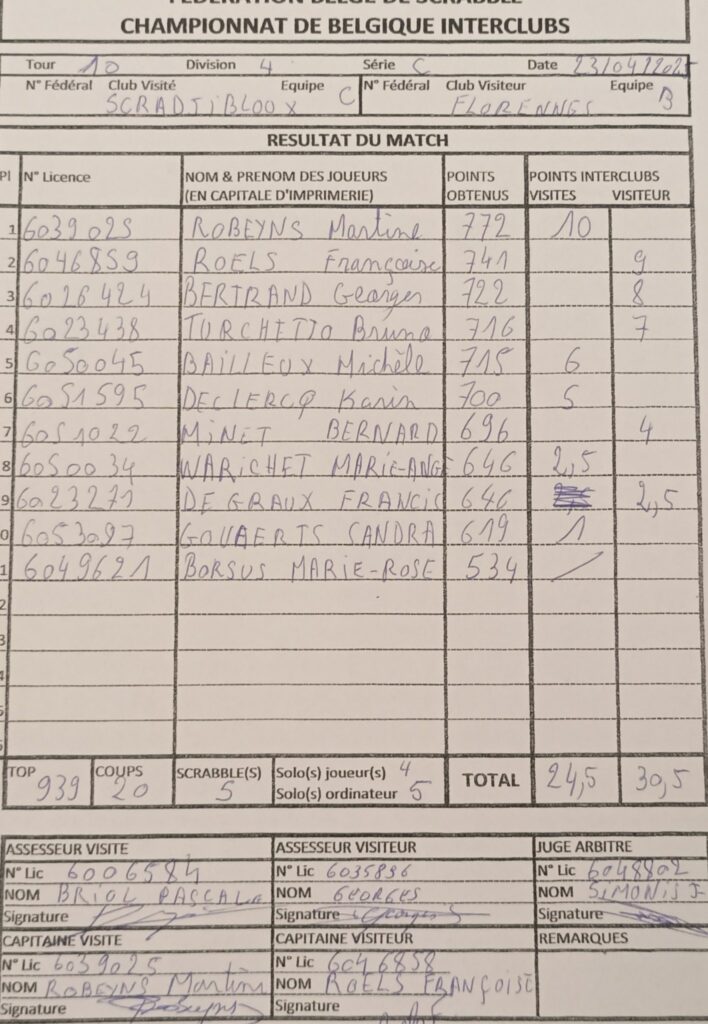 FEDERATION BELGE DE SCRABBLE
CHAMPIONNAT DE BELGIQUE INTERCLUBS
Tour 10 Division 4 Série C Date 23/04/2025
N° Fédéral Club Visité Equipe N° Fédéral Club Visiteur Equipe
SCRADJIBLOUX C FLORENNES B
RESULTAT DU MATCH
Pl N° Licence NOM & PRENOM DES JOUEURS POINTS POINTS INTERCLUBS
(EN CAPITALE D'IMPRIMERIE) OBTENUS VISITES VISITEUR
1 6039025 ROBEYNS Martine 772 10
2 6046859 ROELS Françoise 741 9
3 6026424 BERTRAND Georges 722 8
4 6023438 TURCHETTO Bruno 716 7
5 6050045 BAILLEUX Michèle 715 6
6 6051595 DECLERCQ Karin 700 5
7 6051022 MINET BERNARD 696 4
8 6050034 WARICHET MARIE-ANGE 646 2,5
9 6023271 DE GRAUX FRANCIS 646 2,5
0 6053097 GOVAERTS SANDRA 619 1
1 6049621 BORSUS MARIE-ROSE 534 /
2
3
4
5
TOP 939 COUPS 20 SCRABBLE(S) 5 Solo(s) joueur(s) 4 TOTAL 24,5 30,5
Solo(s) ordinateur 5
ASSESSEUR VISITE ASSESSEUR VISITEUR JUGE ARBITRE
N° Lic 6006584 N° Lic 6035896 N° Lic 6048802
NOM BRIOL PASCALE NOM GEORGES NOM SIMONIS J
Signature Signature Georges Signature
CAPITAINE VISITE CAPITAINE VISITEUR REMARQUES
N° Lic 6039025 N° Lic 6046858
NOM ROBEYNS Martine NOM ROELS FRANÇOISE
Signature Robeyns Signature